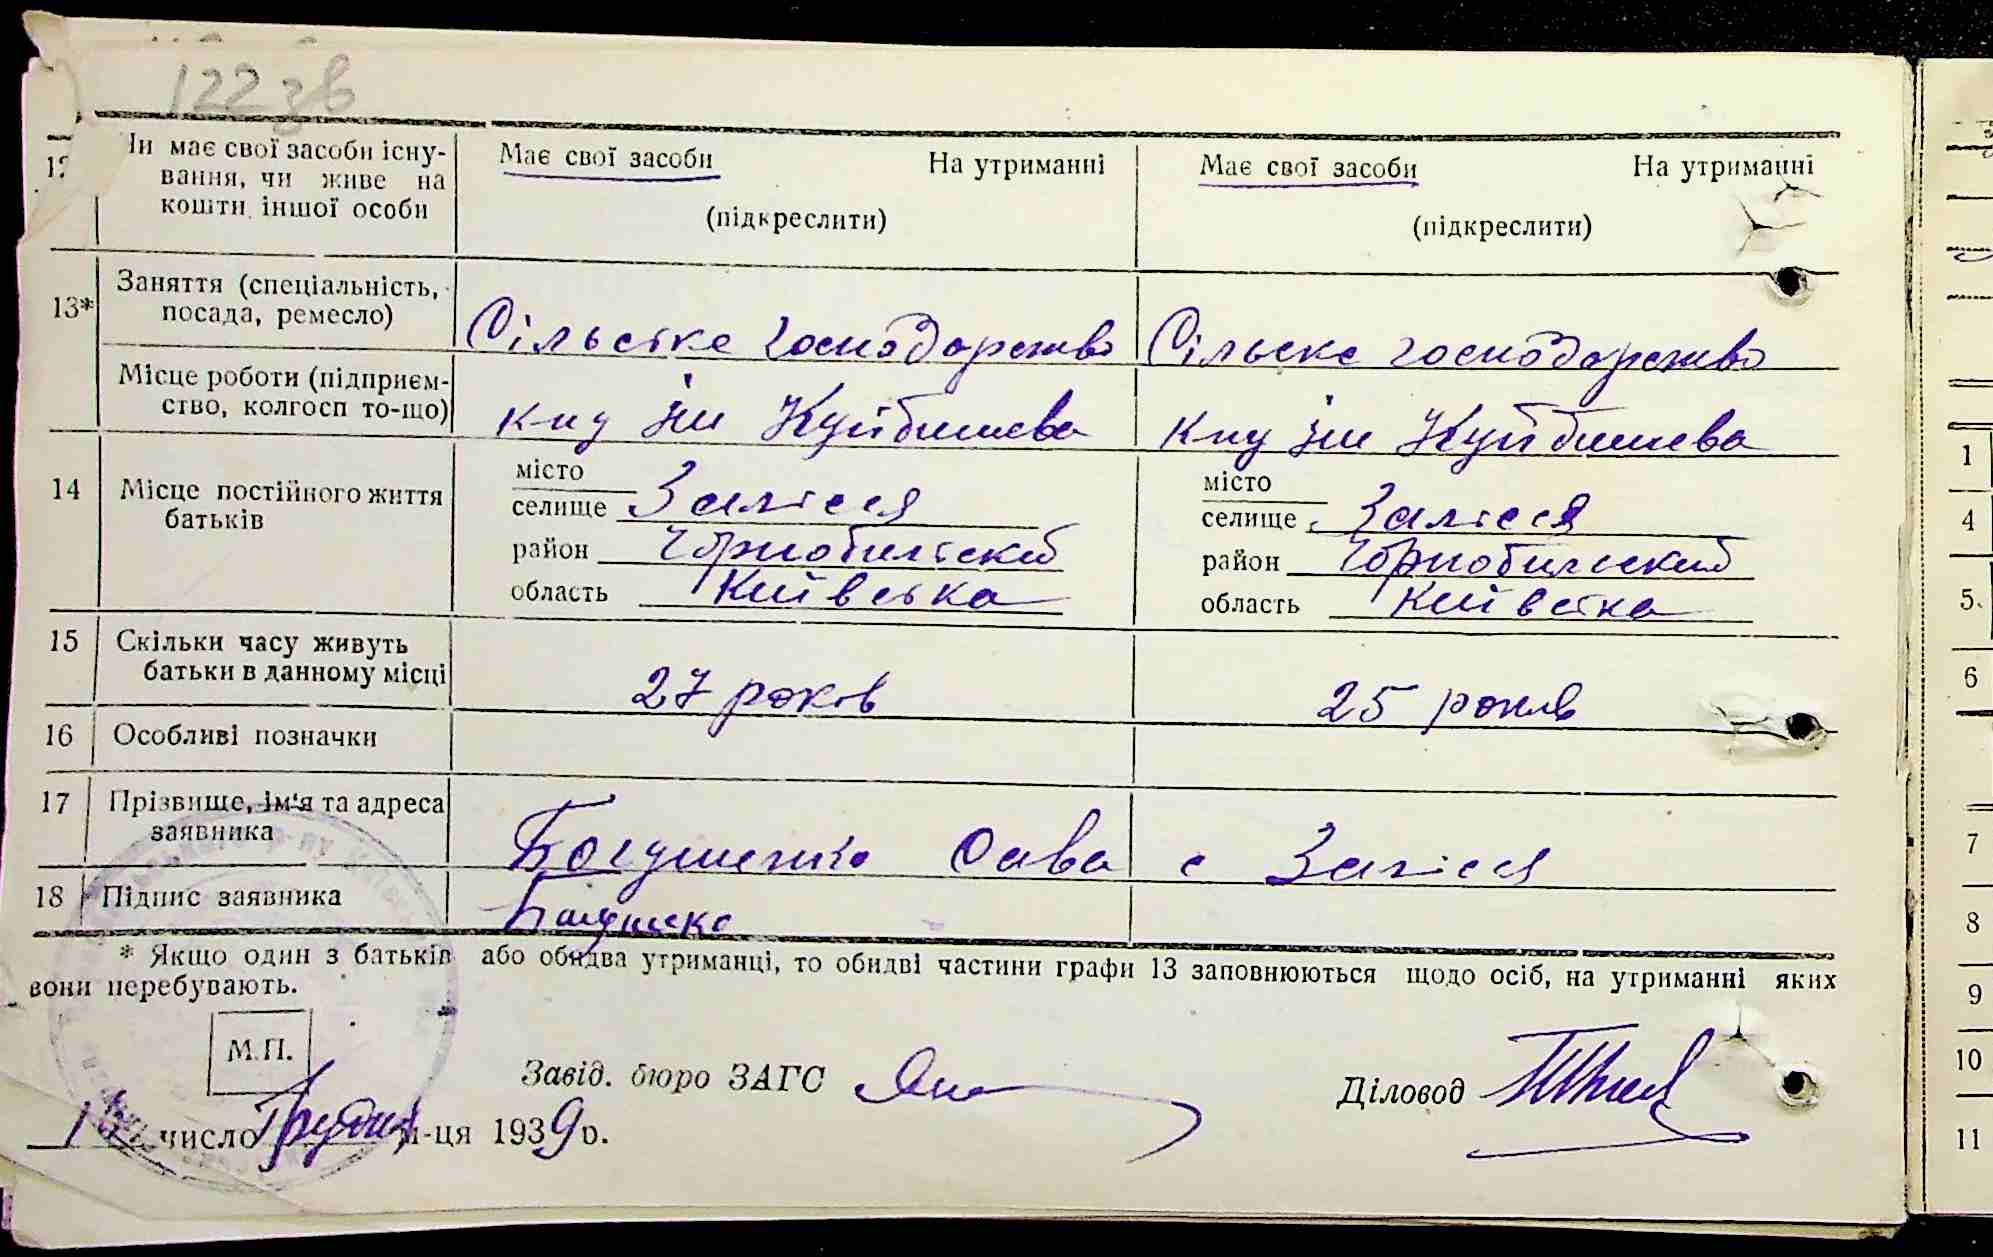 122 зв
12 Чи має свої засоби існу- Має свої засоби На утриманні Має свої засоби На утриманні
вання, чи живе на
кошти іншої особи (підкреслити) (підкреслити)
13* Заняття (спеціальність,
посада, ремесло) Сільське господарство Сільске господарство
Місце роботи (підприєм-
ство, колгосп то-що) к-пу ім Куйбишева к-пу ім Куйбишева
14 Місце постійного життя
батьків
місто місто
селище Залісся селище Залісся
район Чорнобильский район Чорнобильський
область Київська область Київська
15 Скільки часу живуть
батьки в данному місці 27 років 25 років
16 Особливі позначки
17 Прізвище, ім'я та адреса
заявника Богушенко Сава с Залісся
18 Підпис заявника
* Якщо один з батьків або обидва утриманці, то обидві частини графи 13 заповнюються щодо осіб, на утриманні яких
вони перебувають.
М.П.
Завід. бюро ЗАГС Діловод
число Грудня м-ця 1939 р.
1
4
5
6
7
8
9
10
11